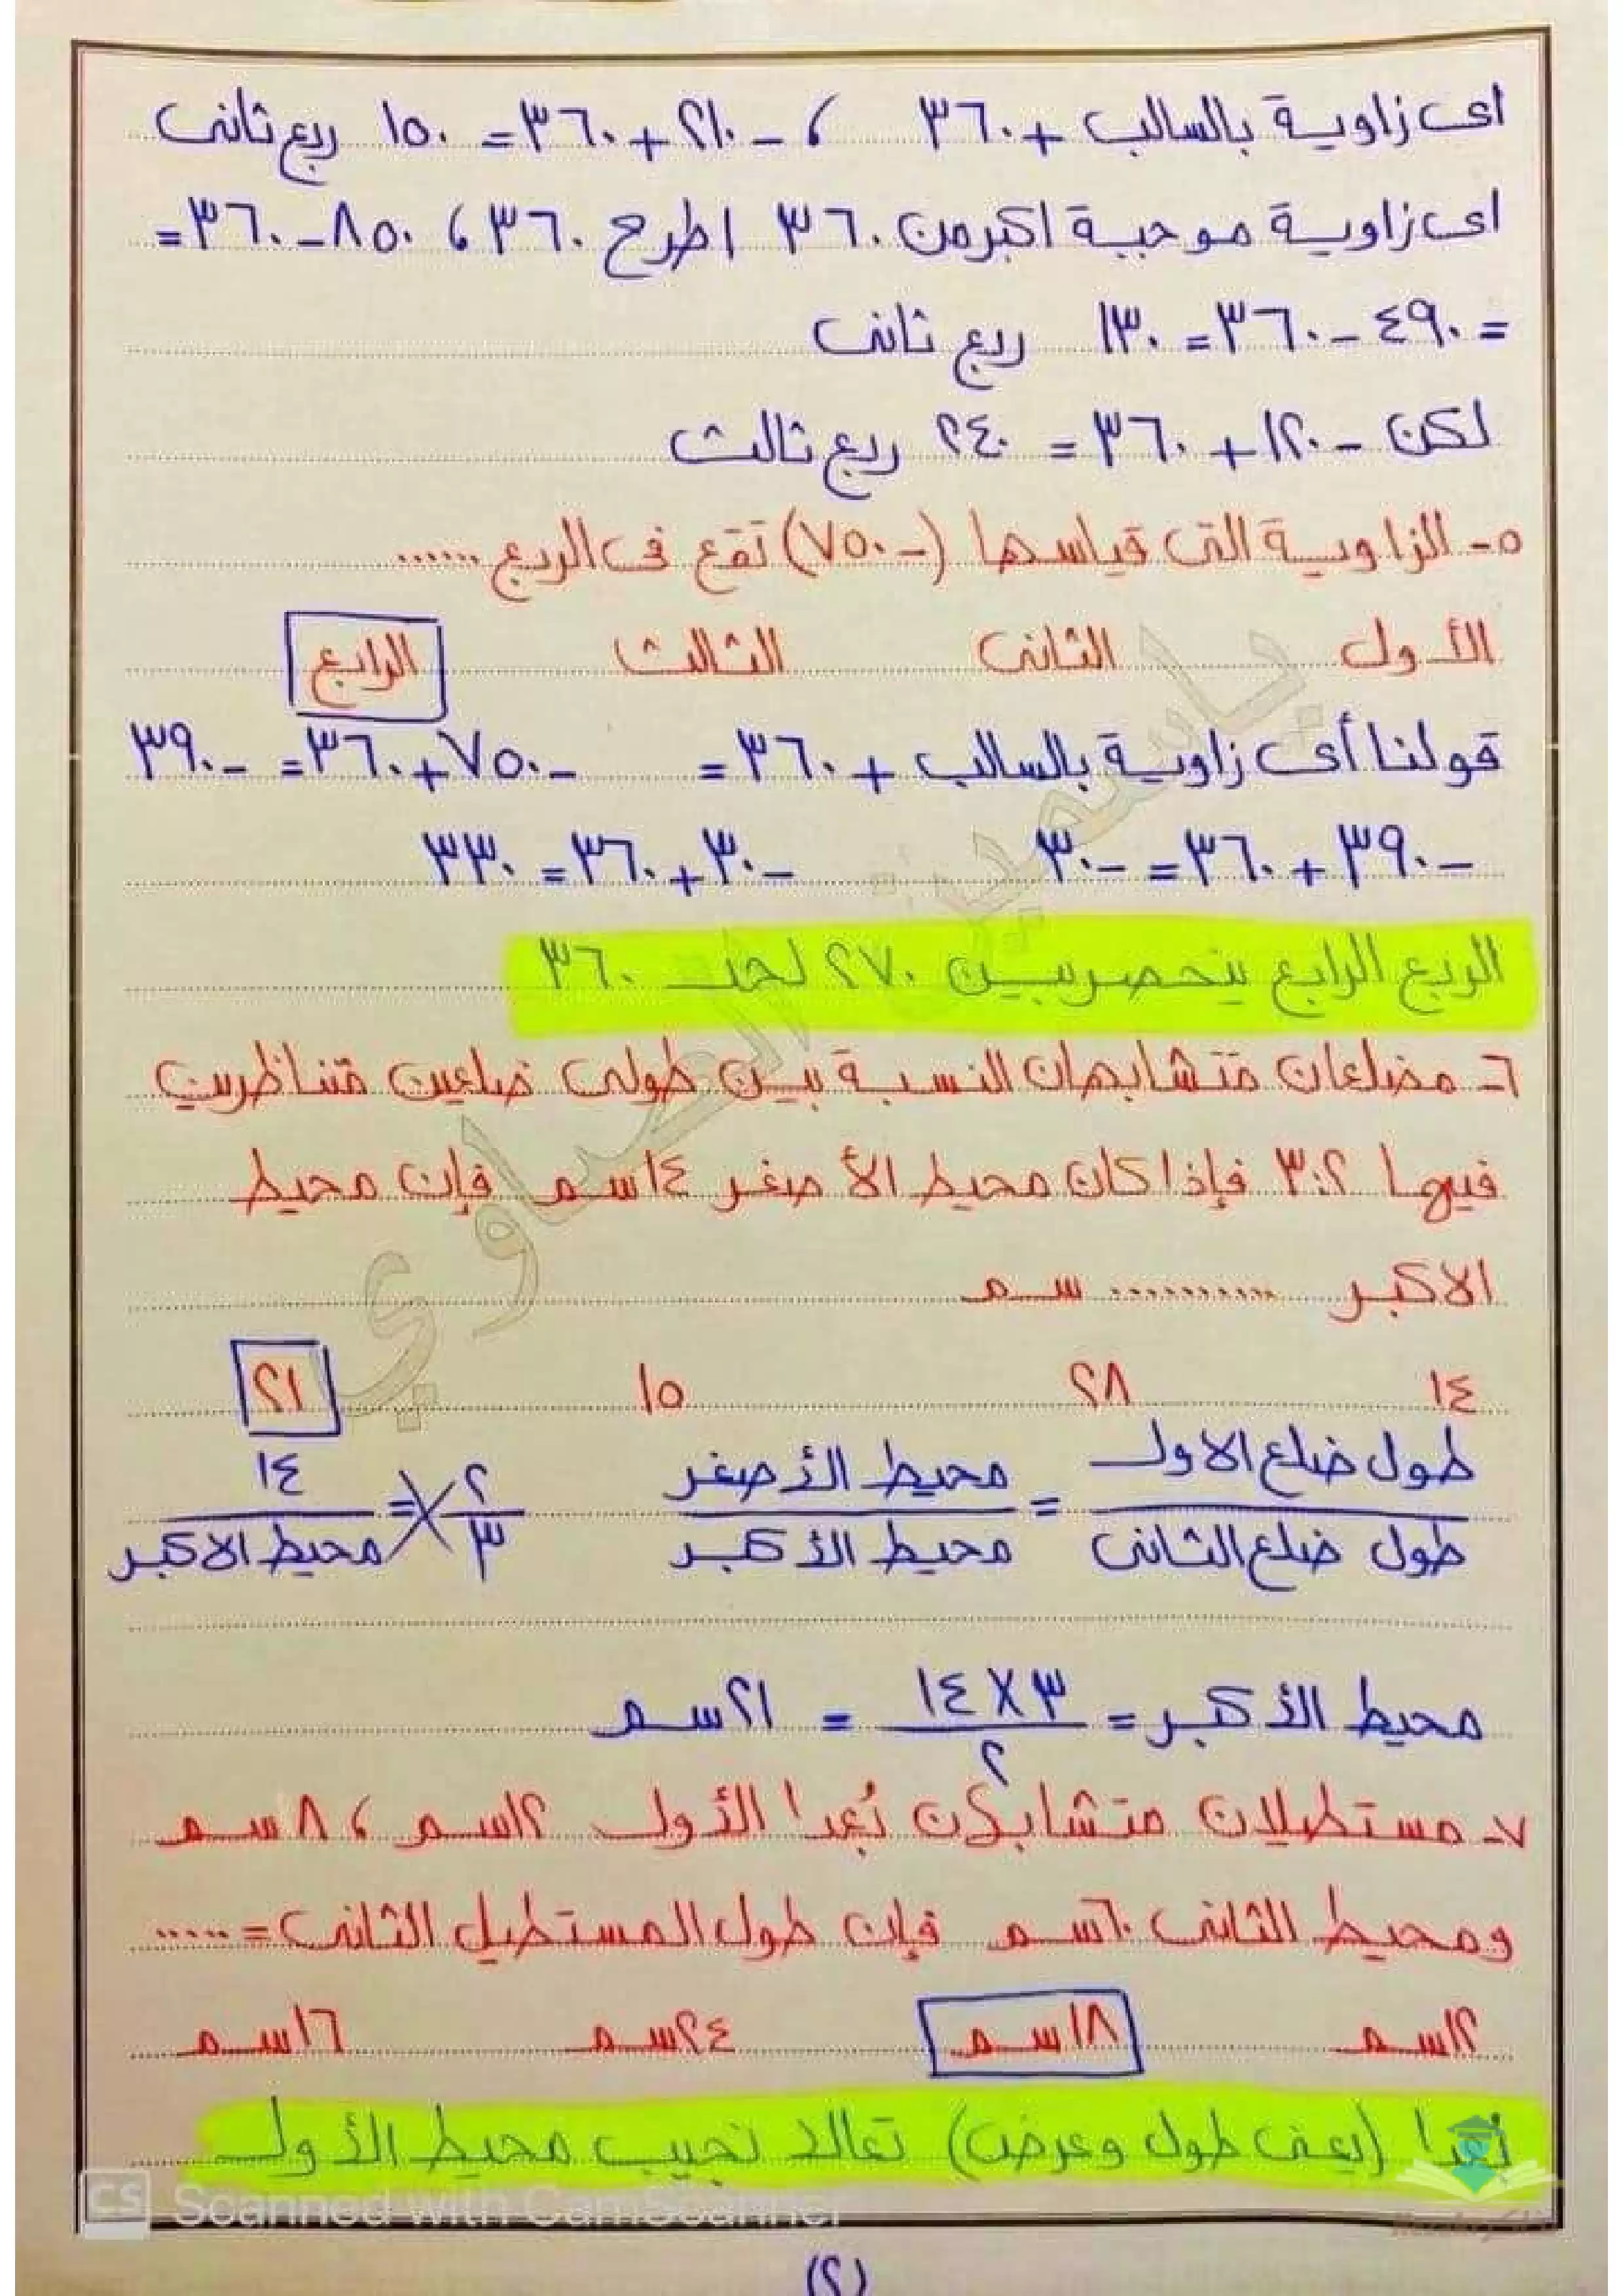 اى زاوية بالسالب + ٣٦٠ ، - ٢١٠ + ٣٦٠ = ١٥٠ ربع ثانى
اى زاوية موجبة اكبر من ٣٦٠ اطرح ٣٦٠ ، ٨٥٠ - ٣٦٠ =
= ٤٩٠ - ٣٦٠ = ١٣٠ ربع ثانى
لكن - ١٢٠ + ٣٦٠ = ٢٤٠ ربع ثالث
٥- الزاوية التى قياسها (- ٧٥٠) تقع فى الربع ......
الأول الثانى الثالث الرابع
قولنا أى زاوية بالسالب + ٣٦٠ = - ٧٥٠ + ٣٦٠ = - ٣٩٠
- ٣٩٠ + ٣٦٠ = - ٣٠ - ٣٠ + ٣٦٠ = ٣٣٠
الربع الرابع ينحصر بين ٢٧٠ لحد ٣٦٠
٦- مضلعان متشابهان النسبة بين طولى ضلعين متناظرين
فيها ٣:٢ فإذا كان محيط الأصغر ١٤ سم فإن محيط
الاكبر .......... سم
١٤ ٢٨ ١٥ ٢١
طول ضلع الاول / طول ضلع الثانى = محيط الأصغر / محيط الأكبر ٢ / ٣ = ١٤ / محيط الاكبر
محيط الأكبر = ٣ X ١٤ / ٢ = ٢١ سم
٧- مستطيلان متشابهان بُعدا الأول ١٢ سم ، ٨ سم
ومحيط الثانى ٦٠ سم فإن طول المستطيل الثانى = .....
١٢ سم ١٨ سم ٢٤ سم ١٦ سم
بُعدا (يعنى طول وعرض) تعالد نجيب محيط الأول
CS Scanned with CamScanner
(٢)